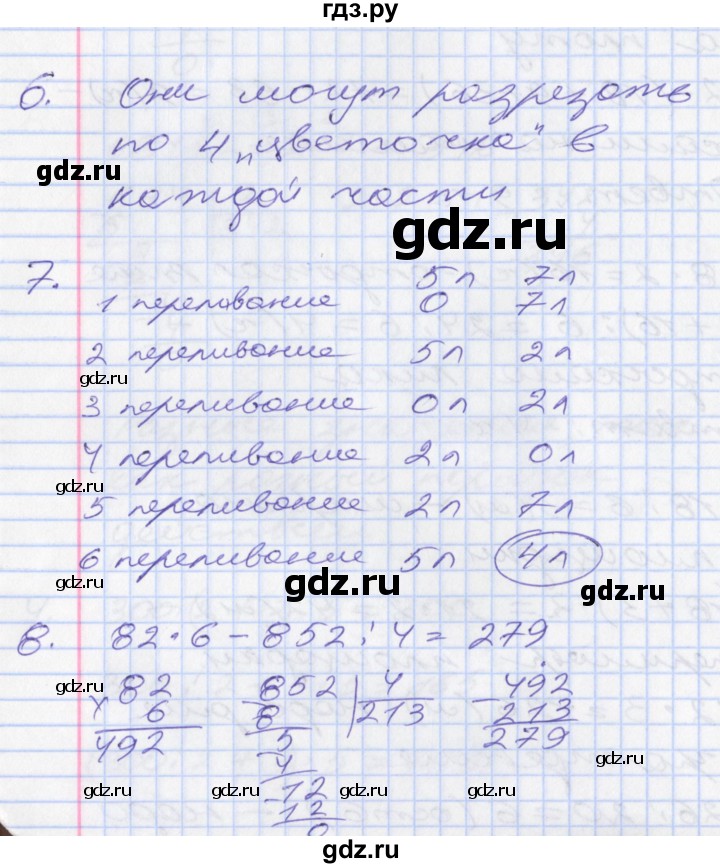 гдз.ру
6. Они могут разрезать
по 4 „цветочка“ в
каждой части
gdz.ru
gdz.ru
7. 5л 7л
1 переливание 0 7л
2 переливание 5л 2л
gdz.ru
3 переливание 0л 2л
4 переливание 2л 0л
gdz.ru
5 переливание 2л 7л
6 переливание 5л 4л
gdz.ru gdz.ru gdz.ru
8. 82·6-852:4=279
gdz.ru
82 852 4 -492
× 6 8 213 213
492 5 279
gdz.ru
4
-12
gdz.ru gdz.ru gdz.ru gdz.ru gdz.ru
12
0
gdz.ru